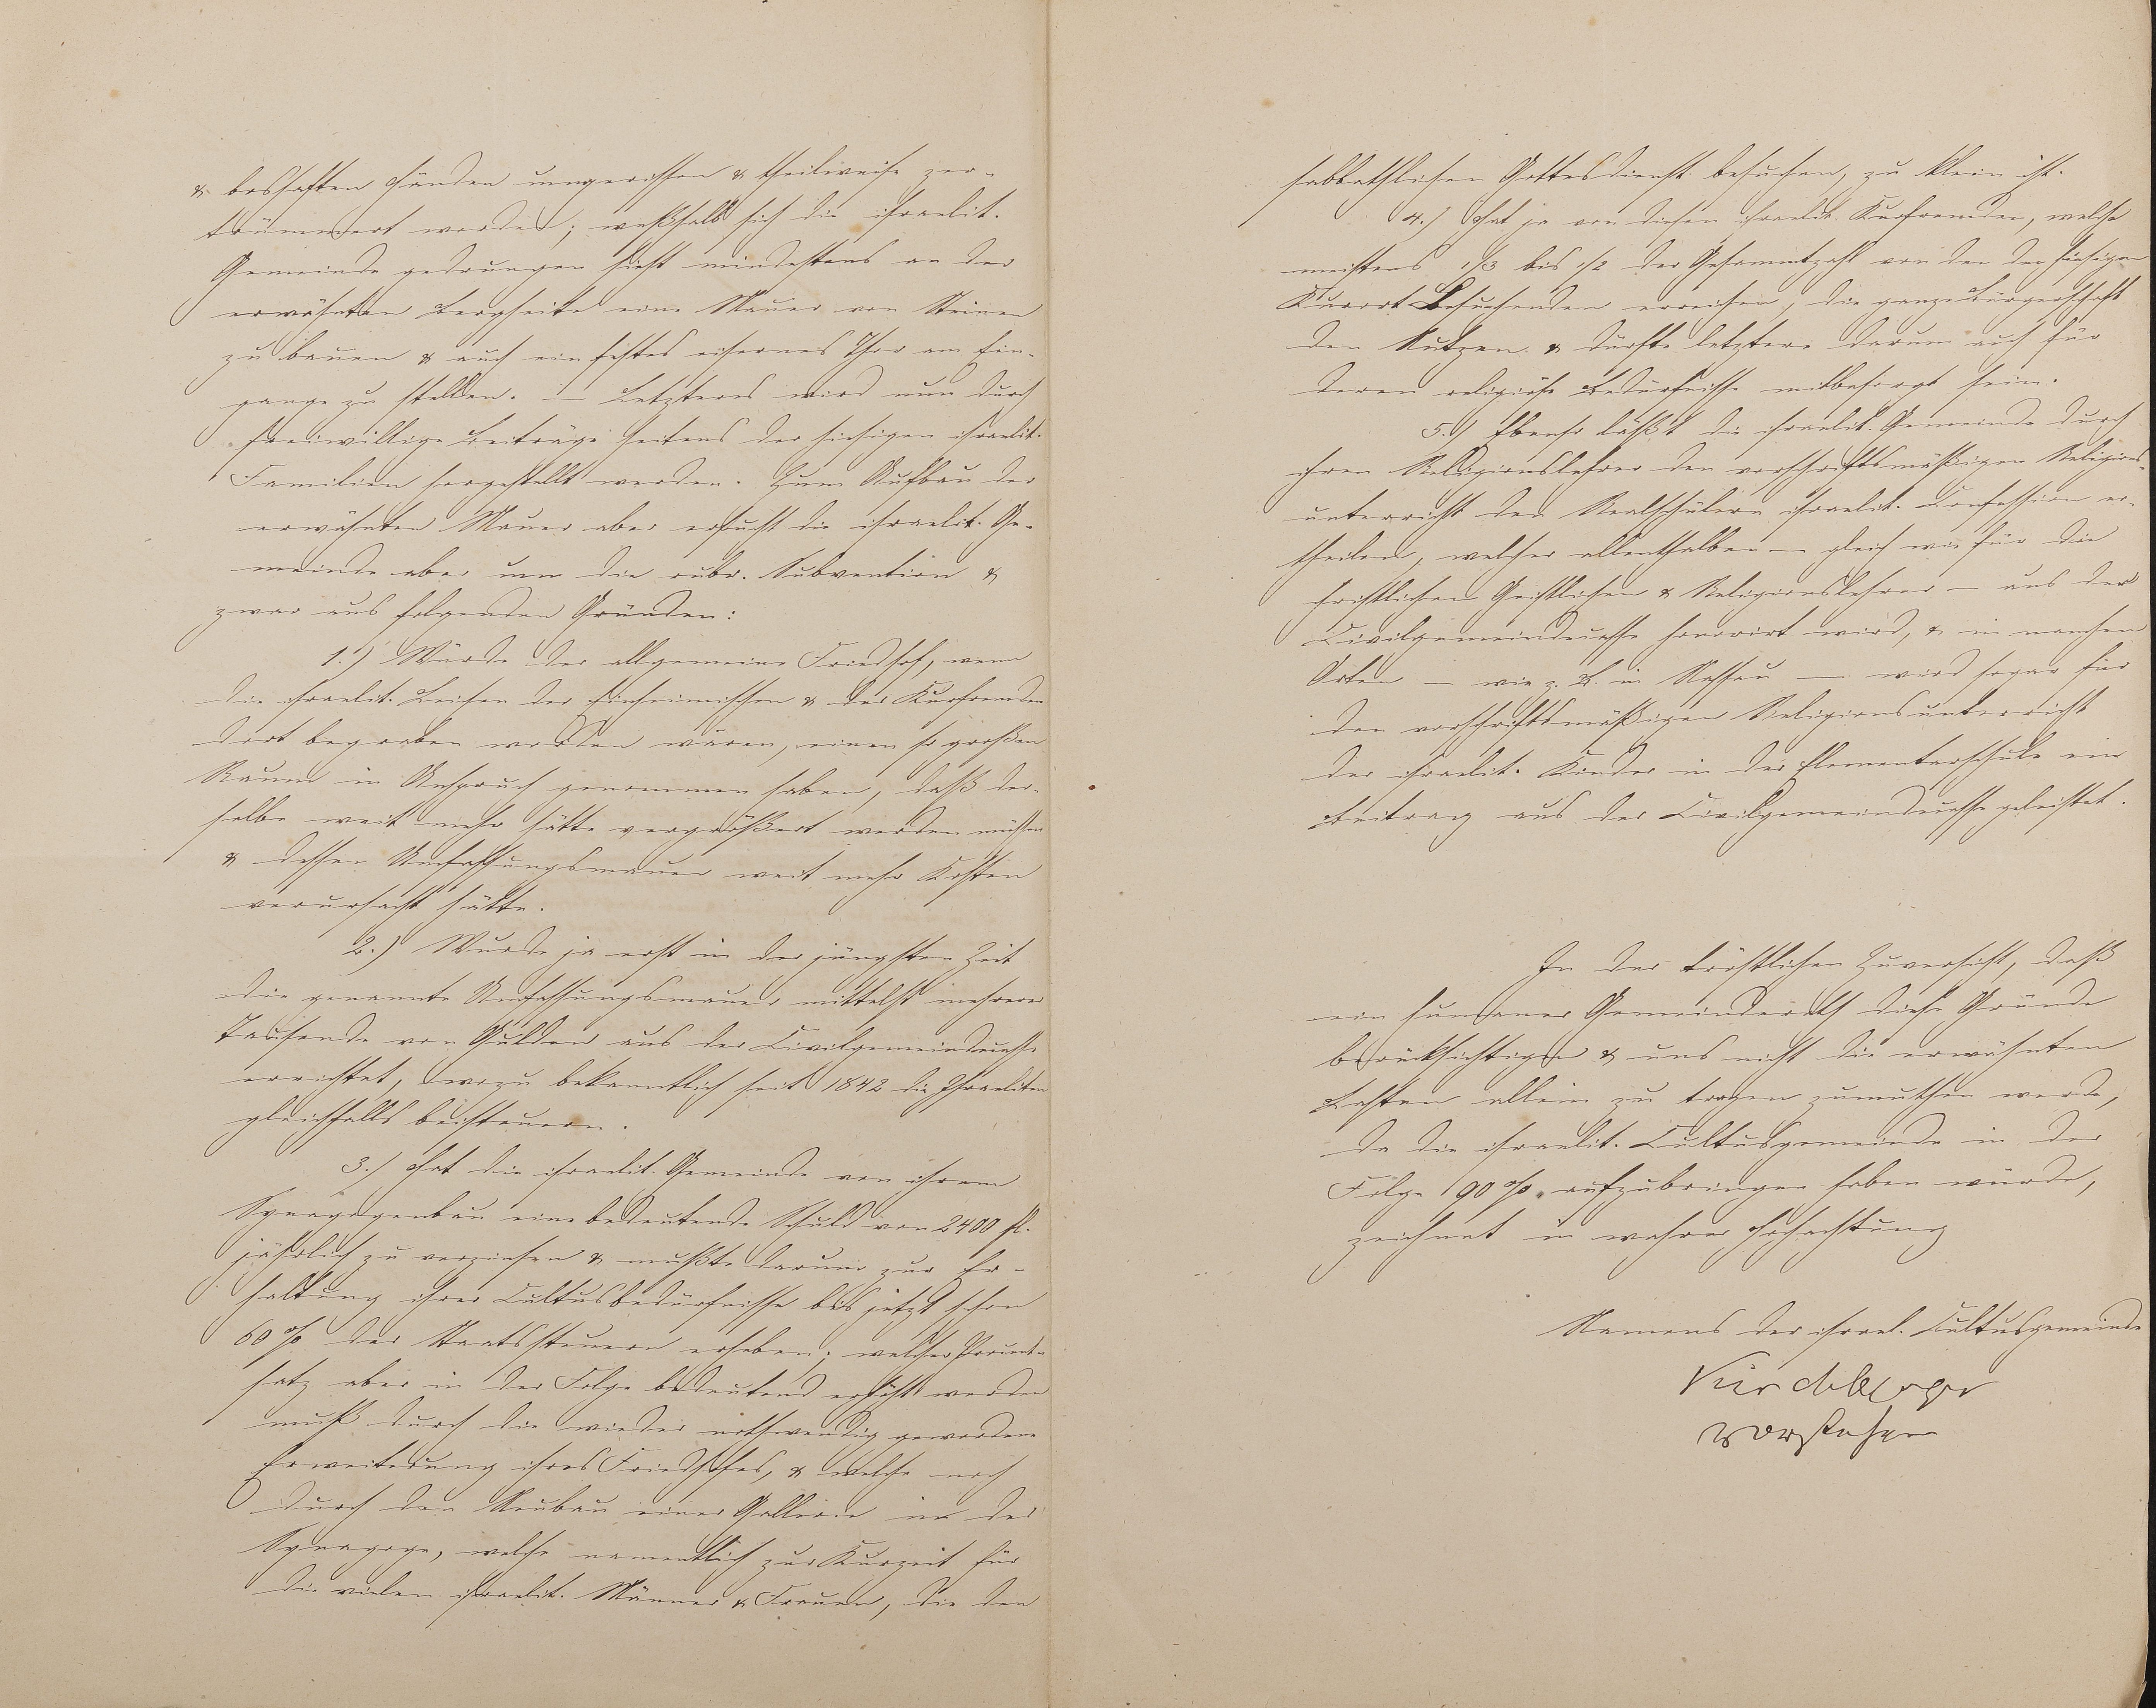 & boshaften Händen umgerissen & theilweise zer-
trümmert worden; weßhalb sich die israelit.
Gemeinde gedrungen sieht mindestens an der
erwähnten Bergseite eine Mauer von Steinen
zu bauen & auch ein festes eisernes Thor am Ein-
gange zu stellen. — Letzteres wird nun durch
freiwillige Beiträge seitens der hiesigen israelit.
Familien hergestellt werden. Zum Aufbau der
erwähnten Mauer aber ersucht die israelit. Ge-
meinde aber um die rubr. Subvention &
zwar aus folgenden Gründen:
1.) Würde der allgemeine Friedhof, wenn
die israelit. Leichen der Einheimischen & der Kurfremden
dort begraben worden wären, einen so großen
Raum in Anspruch genommen haben, daß der-
selbe weit mehr hätte vergrößert werden müssen
& dessen Umfassungsmauer weit mehr Kosten
verursacht hätte.
2.) Wurde ja erst in der jüngsten Zeit
die genannte Umfassungsmauer mittelst mehrerer
Tausende von Gulden aus der Civilgemeindecasse
errichtet, wozu bekanntlich seit 1842 die Israeliten
gleichfalls beisteuern.
3.) Hat die israelit. Gemeinde von ihrem
Synagogenbau eine bedeutende Schuld von 2400 fl.
jährlich zu verzinsen & mußte darum zur Er-
haltung ihrer Cultusbedürfnisse bis jetzt schon
60 % der Staatssteuern erheben; welcher Procent-
satz aber in der Folge bedeutend erhöht werden
muß durch die wieder nothwendig gewordene
Erweiterung ihres Friedhofes, & welche noch
durch den Neubau einer Gallerie in der
Synagoge, welche namentlich zur Kurzeit für
die vielen israelit. Männer & Frauen, die den
sabbathlichen Gottesdienst besuchen, zu klein ist.
4.) Hat ja von diesen israelit. Kurfremden, welche
meistens 1/3 bis 1/2 der Gesammtzahl von den den hiesigen
Kurort Besuchenden erreichen, die ganze Bürgerschaft
den Nutzen & dürfte letztere darum auch für
deren religiöse Bedürfnisse mitbesorgt sein.
5.) Ebenso läßt die israelit. Gemeinde durch
ihren Religionslehrer den vorschriftsmäßigen Religions-
unterricht den Realschülern israelit. Confession er-
theilen, welcher allenthalben — gleich wie für die
christlichen Geistlichen & Religionslehrer — aus der
Civilgemeindecasse honorirt wird, & in manchen
Orten — wie z. B. in Nassau — wird sogar für
den vorschriftsmäßigen Religionsunterricht
der israelit. Kinder in der Elementarschule ein
Beitrag aus der Civilgemeindecasse geleistet.
In der tröstlichen Zuversicht, daß
ein humaner Gemeinderath diese Gründe
berücksichtigen & uns nicht die erwähnten
Lasten allein zu tragen zumuthen werde,
da die israelit. Cultusgemeinde in der
Folge 90 % aufzubringen haben würde,
zeichnet in wahrer Hochachtung
Namens der israel. Cultusgemeinde
Kirchberger
Vorsteher